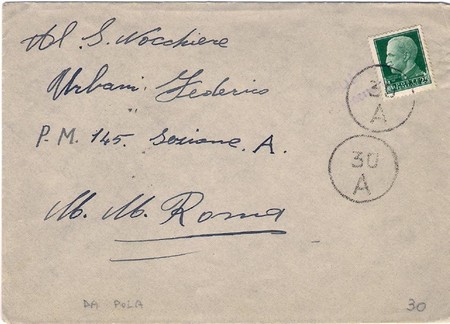 Al S. Nocchiere
Urbani Federico
P. M. 145. Sezione. A.
M. M. Roma
A
30
A
DA POLA
30